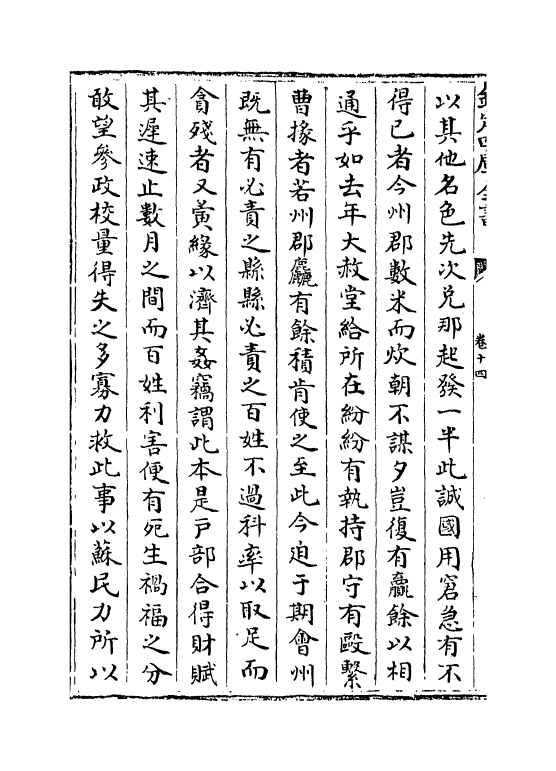 欽定四庫全書
卷十四
以其他名色先次兑那起發一半此誠國用窘急有不
得已者今州郡數米而炊朝不謀夕豈復有贏餘以相
通乎如去年大赦堂給所在紛紛有執持郡守有毆繫
曹掾者若州郡麤有餘積肯使之至此今迫于期會州
既無有必責之縣縣必責之百姓不過科率以取足而
貪殘者又夤緣以濟其姦竊謂此本是戶部合得財賦
其遲速止數月之間而百姓利害便有死生禍福之分
敢望參政校量得失之多寡力救此事以蘇民力所以